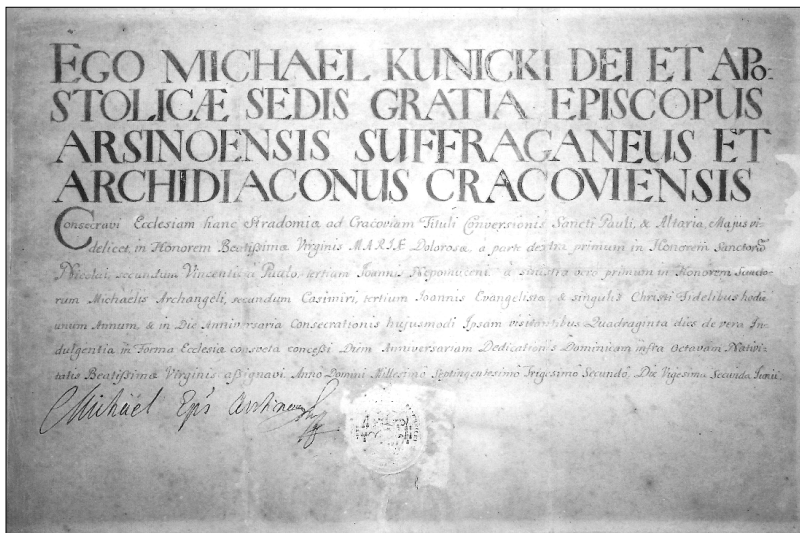 EGO MICHAEL KUNICKI DEI ET APO-
STOLICÆ SEDIS GRATIA EPISCOPUS
ARSINOENSIS SUFFRAGANEUS ET
ARCHIDIACONUS CRACOVIENSIS
Consecravi Ecclesiam hanc Stradomiæ ad Cracoviam Tituli Conversionis Sancti Pauli, & Altaria, Majus vi-
delicet, in Honorem Beatißimæ Virginis MARIÆ Dolorosæ, a parte dextra primum in Honorem Sanctorũ
Nicolai, secundum Vincentii a Paulo, tertium Joannis Nepomuceni, a sinistra vero primum in Honorem Sancto-
rum Michaelis Archangeli, secundum Casimiri, tertium Joannis Evangelistæ, & singulis Christi Fidelibus hodie
unum Annum, & in Die Anniversaria Consecrationis hujusmodi Ipsam visitantibus Quadraginta dies de vera In-
dulgentia in Forma Ecclesiæ consveta conceßi Diem Anniversariam Dedicationis Dominicam infra Octavam Nativi-
tatis Beatißimæ Virginis aßignavi. Anno Domini Millesimo Septingentesimo Trigesimo Secundo Die Vigesima Secunda Junii
Michael Eps